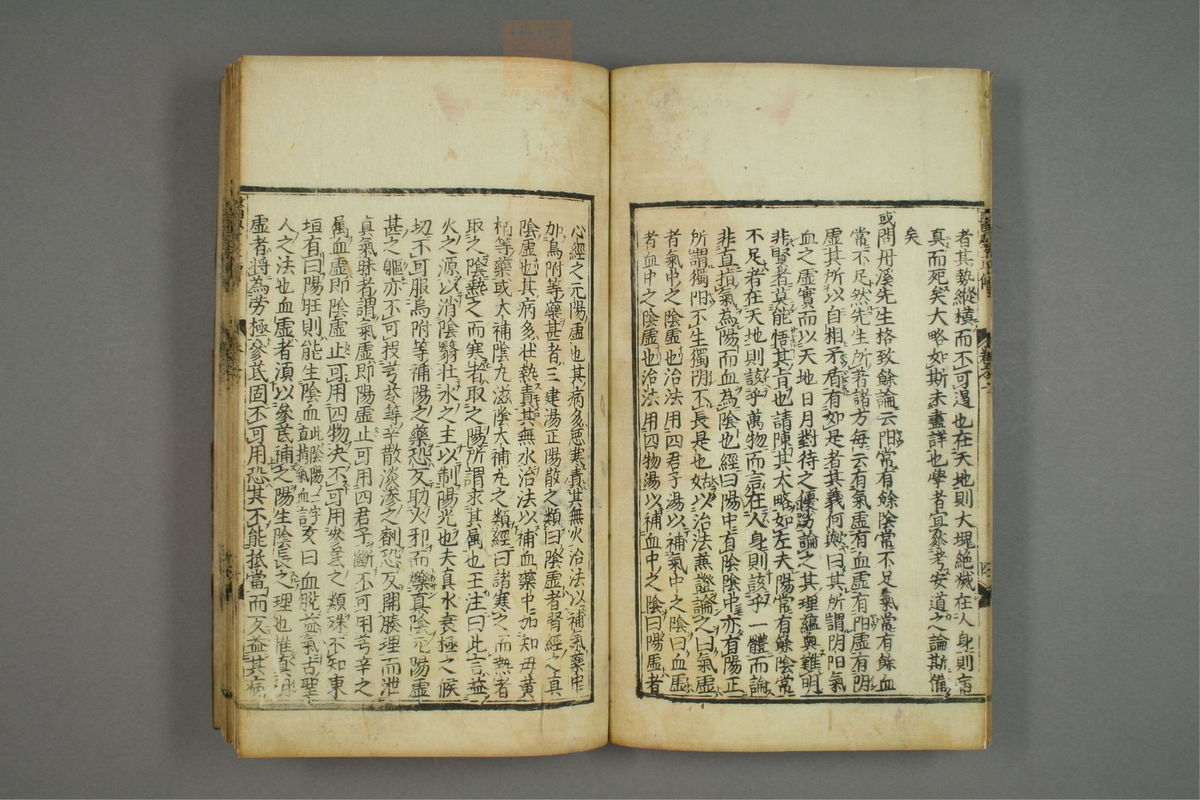 者其勢縱橫而不可遏也在天地則大塊絕滅在人身則
真而死矣大略如斯未盡詳也學者宜叅考安道之論斯備
矣
或問丹溪先生格致餘論云阳常有餘陰常不足氣常有餘血
常不足然先生所著諸方每云有氣虛有血虛有阳虛有阴
虛其所以自相矛盾有如是者其義何歟曰其所謂阴阳氣
血之虛實而以天地日月對待之優劣論之其理蘊奧難明
非賢者莫能悟其旨也請陳其大略如左夫陽常有餘陰常
不足者在天地則該乎萬物而言在人身則該乎一體而論
非直指氣為陽而血為陰也經曰陽中有陰陰中亦有陽正
所謂獨阳不生獨阴不長是也姑以治法兼證論之曰氣虛
者氣中之陰虛也治法用四君子湯以補氣中之陰曰血虛
者血中之陰虛也治法用四物湯以補血中之陰曰陽虛者
心經之元陽虛也其病多惡寒責其無火治法以補氣藥中
加烏附等藥甚者三建湯正陽散之類曰陰虛者腎經之真
陰虛也其病多壮熱責其無水治法以補血藥中加知毋黃
柏等藥或大補陰丸滋陰大補丸之類經曰諸寒之而熱者
取之陰熱之而寒者取之陽所謂求其属也王注曰此言益
火之源以消陰翳壮水之主以制陽光也夫真水衰極之候
切不可服烏附等補陽之藥恐反助火邪而爍真陰元陽虛
甚之軀亦不可投芎芩等辛散淡滲之劑恐反開腠理而泄
真氣昧者謂氣虛即陽虛止可用四君子斷不可用芎辛之
属血虛即陰虛止可用四物决不可用參芪之類殊不知東
垣有曰陽旺則能生陰血此陰陽二字直指氣血言又曰血脫益氣古聖
人之法也血虛者須以參芪補之陽生陰長之理也惟真阴
虛者將為勞極參芪固不可用恐其不能抵當而反益其病